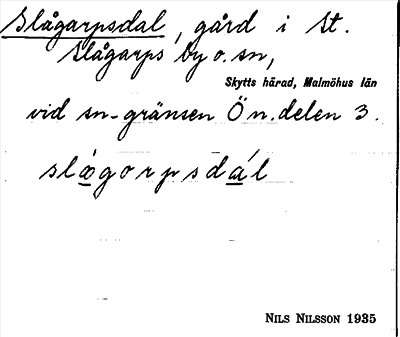 Slågarpsdal, gård i St.
Slågarps by o. sn,
Skytts härad, Malmöhus län
vid sn-gränsen Ö n. delen 3.
slågorpsdál
NILS NILSSON 1935